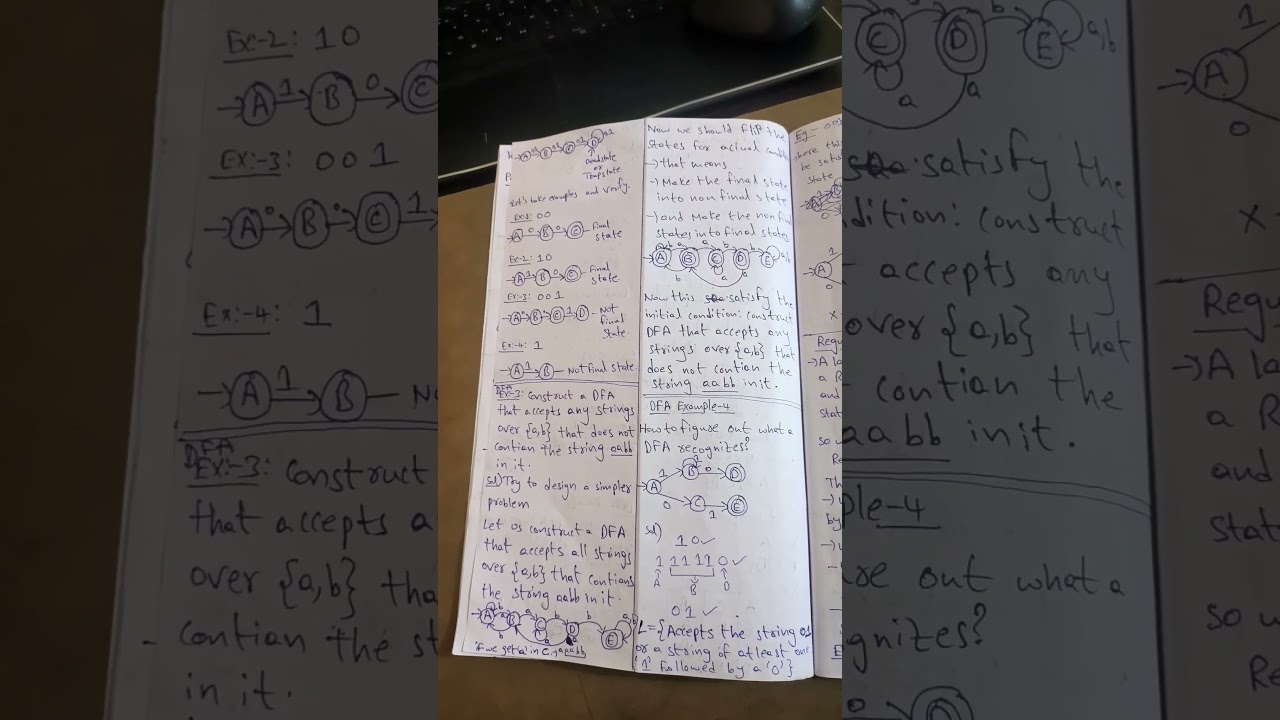 Deadstate
or
Trapstate
Let's take examples and verify.
Ex:1: 00
A 0 B 0 C - final
state
Ex-2: 10
A 1 B 0 C - final
state
Ex:-3: 001
A 0 B 0 C 1 D - Not
final
state.
Ex:-4: 1
A 1 B - Not final state.
DFA
Ex:-3: Construct a DFA
that accepts any strings
over {a,b} that does not
- contian the string aabb
in it.
sol) Try to design a simpler
problem
Let us construct a DFA
that accepts all strings
over {a,b} that contians
the string aabb in it.
A B C D E
Now we should flip the
states for actual
→ that means
→ Make the final state
into non final state
→ and Make the non final
states into final states
A B C D E
a b a a b b a a,b
Now this satisfy the
initial condition: construct
DFA that accepts any
strings over {a,b} that
does not contian the
string aabb in it.
DFA Example-4
How to figure out what a
DFA recognizes?
1 B 0 D
A
0 C 1 E
sol)
10✓
1 1 1 1 1 0✓
A B D
01 ✓
L={Accepts the string 01
or a string of atleast one
'1' followed by a '0'}
Ex-2: 10
A 1 B 0 C
Ex:-3: 001
A 0 B 0 C 1
Ex:-4: 1
A 1 B
DFA
Ex:-3: Construct
that accepts a
over {a,b} tha
- contian the st
in it.
C D b E a,b
a a
satisfy the
dition: construct
accepts any
over {a,b} that
contian the
aabb in it.
ple-4
re out what a
gnizes?
1
A
0
X
Regu
→ A la
a R
and
stat
so w
Re